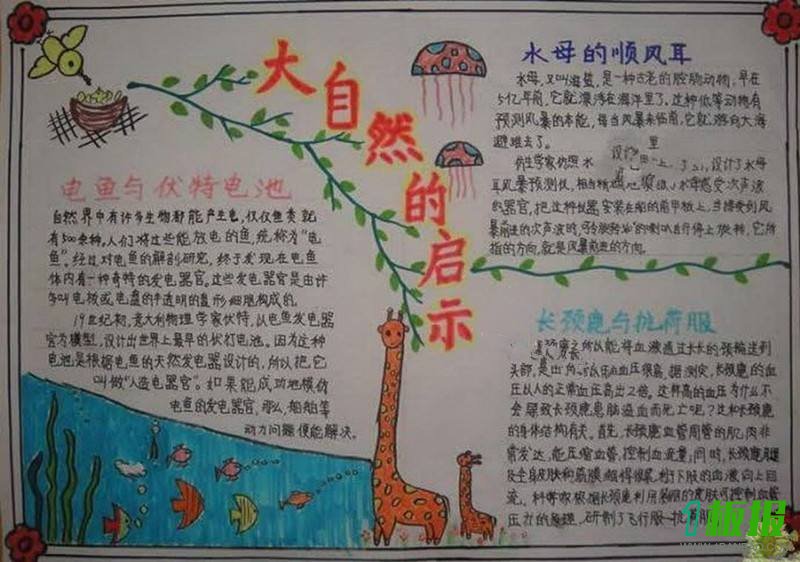 大自然的启示
电鱼与伏特电池
自然界中有许多生物都能产生电,仅仅鱼类就
有500余种。人们将这些能放电的鱼,统称为“电
鱼”。经过对电鱼的解剖研究,终于发现在电鱼
体内有一种奇特的发电器官。这些发电器官是由许
多叫电板或电盘的半透明的盘形细胞构成的。
19世纪初,意大利物理学家伏特,以电鱼发电器
官为模型,设计出世界上最早的伏打电池。因为这种
电池是根据电鱼的天然发电器设计的,所以把它
叫做“人造电器官”。如果能成功地模仿
电鱼的发电器官,那么,船舶等
动力问题便能解决。
水母的顺风耳
水母,又叫海蜇,是一种古老的腔肠动物,早在
5亿年前,它就漂浮在海洋里了。这种低等动物有
预测风暴的本能,每当风暴来临前,它就游向大海
避难去了。
仿生学家仿照水 设计了水母
耳风暴预测仪,相当 水母感受次声波
的器官。把这种仪器安装在船的前甲板上,当接受到风
暴的次声波时,可 的喇叭 停止旋转,它所
指的方向,就是风暴前进的方向。
长颈鹿与抗荷服
长颈鹿之所以能将血液通过长长的颈输送到
头部,是由 血压很高。据测定,长颈鹿的血
压比人的正常血压高出2倍。这样高的血压为什么不
会导致长颈鹿患脑溢血而死亡呢?这和长颈鹿
的身体结构有关。首先,长颈鹿血管周围的肌肉非
常发达,能压缩血管,控制血流量;同时,长颈鹿腿
及全身皮肤和筋膜绷得很紧,利于下肢的血液向上回
流。科学家根据长颈鹿利用 的皮肤可控制血管
压力的原理,研制了飞行服—抗荷服
板报